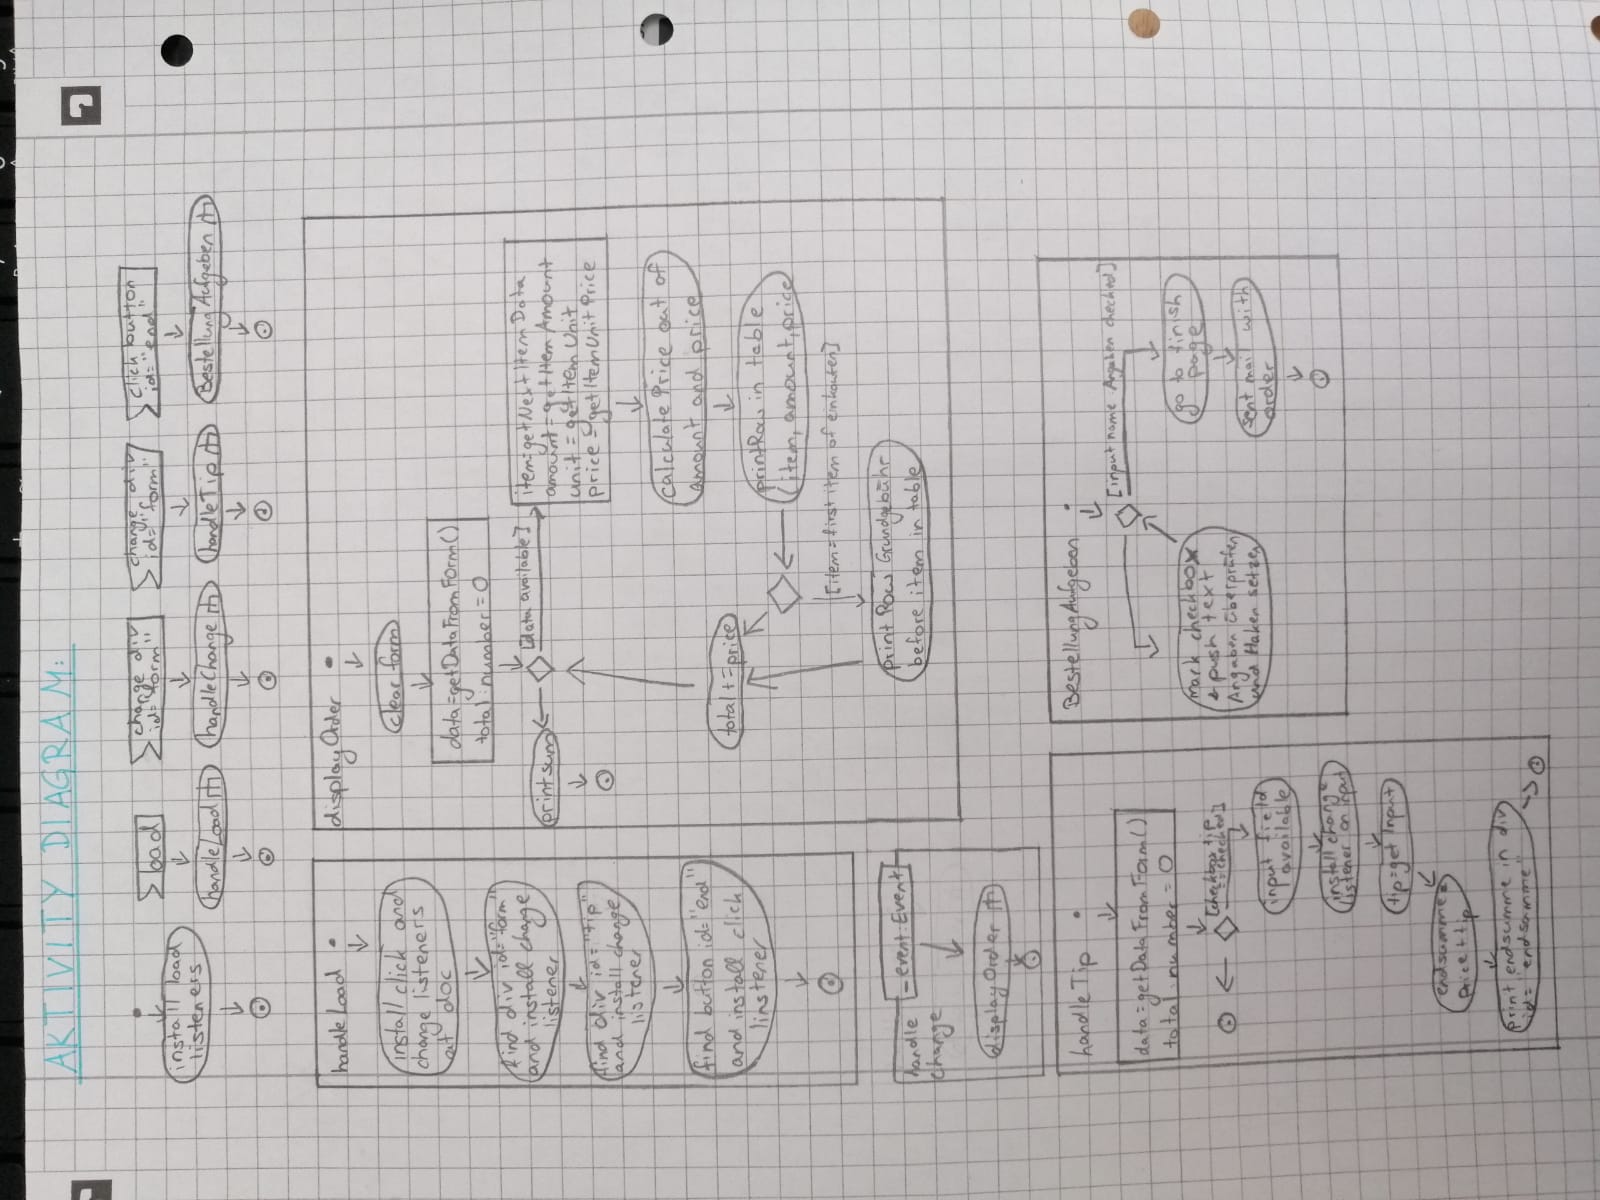 AKTIVITY DIAGRAM:
install load
listeners
load
handleLoad
change div
id="form"
handleChange
change div
id="form"
handleTip
click button
id="end"
BestellungAufgeben
handleLoad
install click and
change listeners
at doc
find div id="form"
and install change
listener
find div id="tip"
and install change
listener
find button id="end"
and install click
linstener
displayOrder
clear form
data=getDataFromForm()
total:number=0
[data available]
print sum
item=getNextItemData
amount=getItemAmount
unit=getItemUnit
price=getItemUnitPrice
calculate Price out of
amount and price
printRow in table
(item, amount, price
total+=price
[item=first item of einkaufen]
print Row Grundgebühr
before item in table
handle
change
_event:Event
displayOrder
handleTip
data=getDataFromForm()
total:number=0
[checkbox tip
==checked]
input field
available
install change
listener on input
tip=get Input
endsumme=
price+tip
print endsumme in div
id="endsumme"
BestellungAufgeben
[input name Angaben checked]
mark checkbox
+ push text
Angaben überprüfen
und Haken setzen
go to finish
page
sent mail with
order